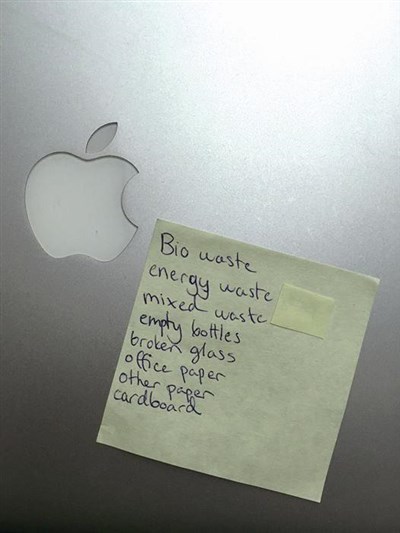 Bio waste
energy waste
mixed waste
empty bottles
broken glass
office paper
other paper
cardboard